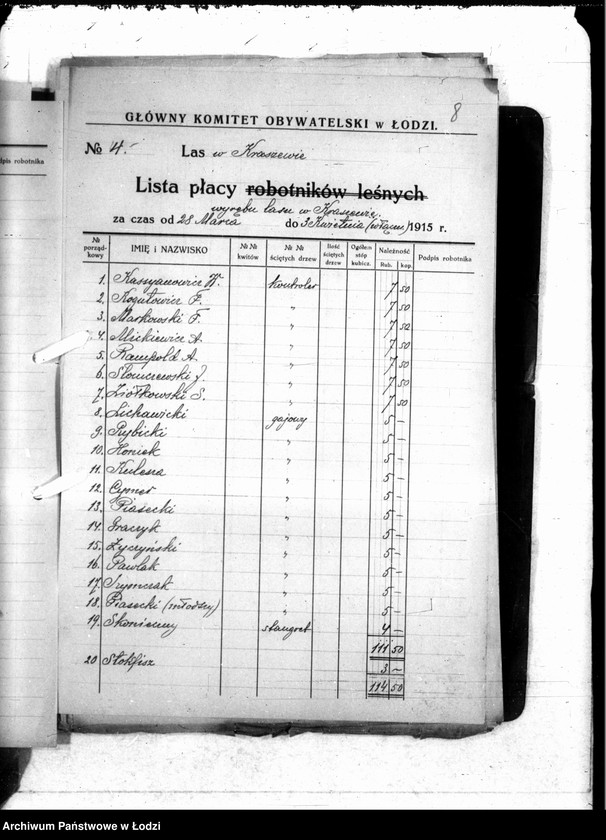 8
GŁÓWNY KOMITET OBYWATELSKI w ŁODZI.
№ 4.
Las w Kraszewie
dpis robotnika
Lista płacy robotników leśnych
wyrębu lasu w Kraszewie.
za czas od 28 Marca do 3 Kwietnia (włączn.) 1915 r.
№ porząd-kowy IMIĘ i NAZWISKO №№ kwitów №№ ściętych drzew Ilość ściętych drzew Ogółem stóp kubicz. Należność Rub. kop. Podpis robotnika
1. Kassyanowicz W. kontroler 7 50
2. Kogutowicz F. " 7 50
3. Markowski F. " 7 50
4. Mickiewicz A. " 7 50
5. Rampold A. " 7 50
6. Słomczewski J. " 7 50
7. Ziółkowski S. " 7 50
8. Lichawicki gajowy 5 –
9. Rybicki " 5 –
10. Honiek " 5 –
11. Kulesza " 5 –
12. Cymer " 5 –
13. Piasecki " 5 –
14. Graczyk " 5 –
15. Życzyński " 5 –
16. Pawlak " 5 –
17. Szymczak " 5 –
18. Piasecki (młodszy) " 5 –
19. Skonieczny stangret 4 –
111 50
20 Stokfisz 3 –
114 50
Archiwum Państwowe w Łodzi